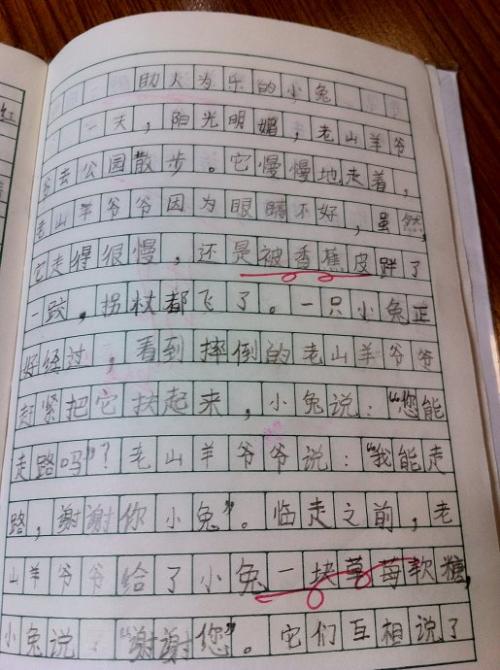 助人为乐的小兔
一天，阳光明媚，老山羊爷
爷去公园散步。它慢慢地走着，
老山羊爷爷因为眼睛不好，虽然，
它走得很慢，还是被香蕉皮跘了
一跤，拐杖都飞了。一只小兔正
好经过，看到摔倒的老山羊爷爷
赶紧把它扶起来，小兔说：“您能
走路吗”？老山羊爷爷说：“我能走
路，谢谢你小兔”。临走之前，老
山羊爷爷给了小兔一块草莓软糖，
小兔说：“谢谢您”。它们互相说了